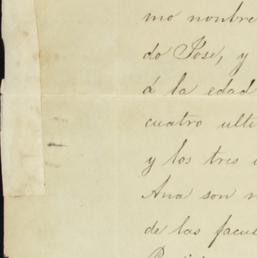 mo nombre
do Jose, y
á la edad
cuatro ulti
y los tres
Ana son
de las facul